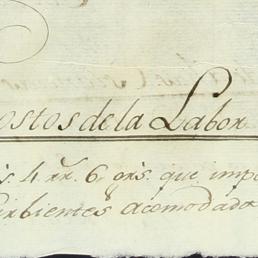 ostos de la Labor
s. 4 rr. 6. grs. que imp
irbientes acomodado